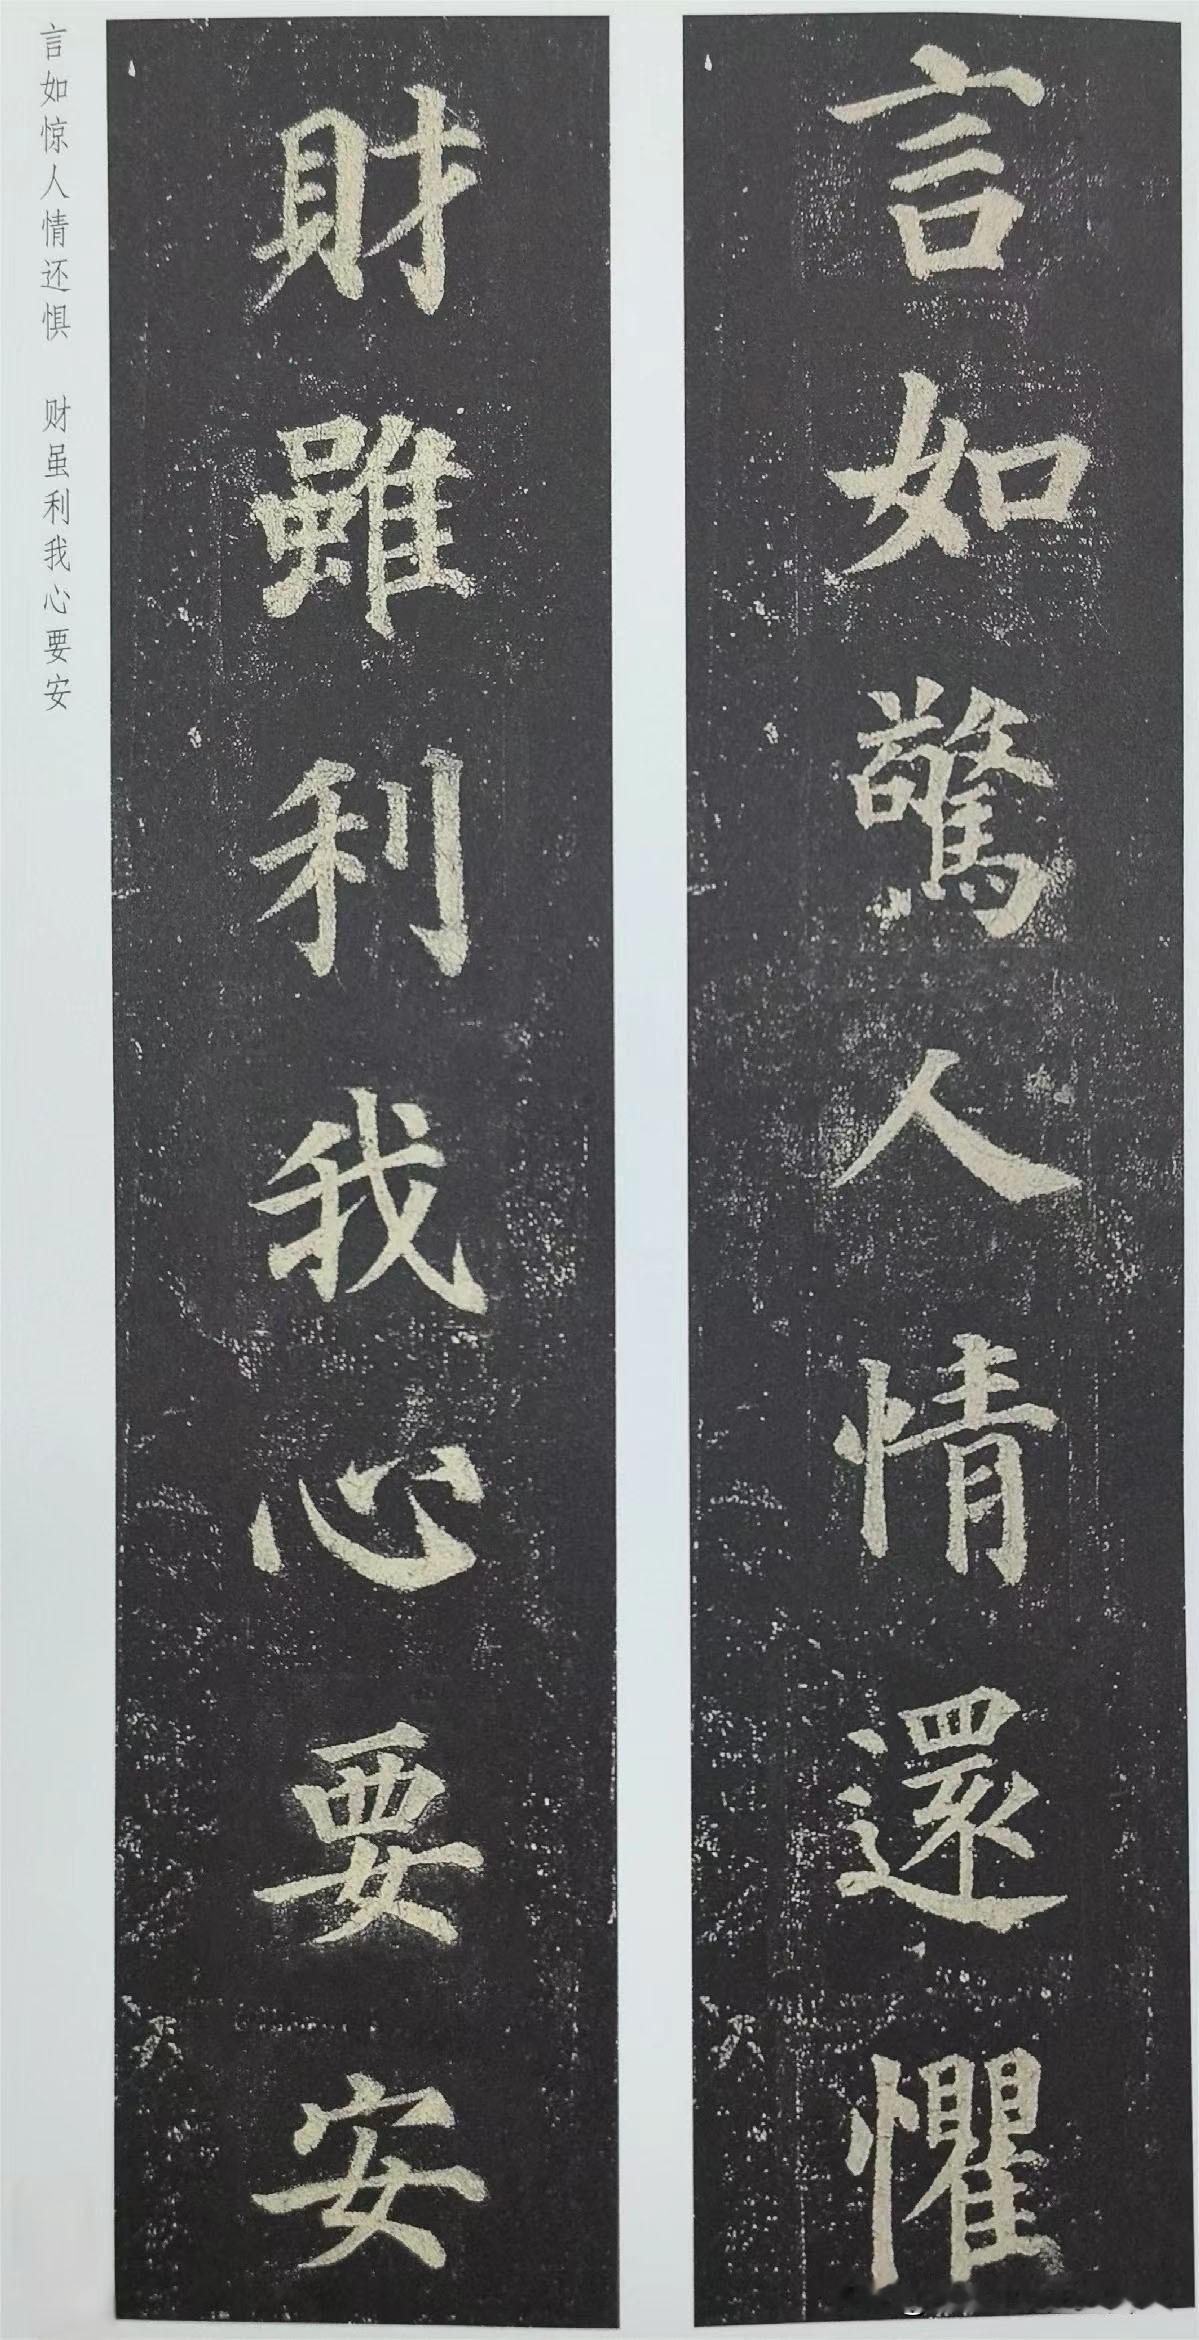 言如驚人情還懼
財雖利我心要安
言如惊人情还惧 财虽利我心要安